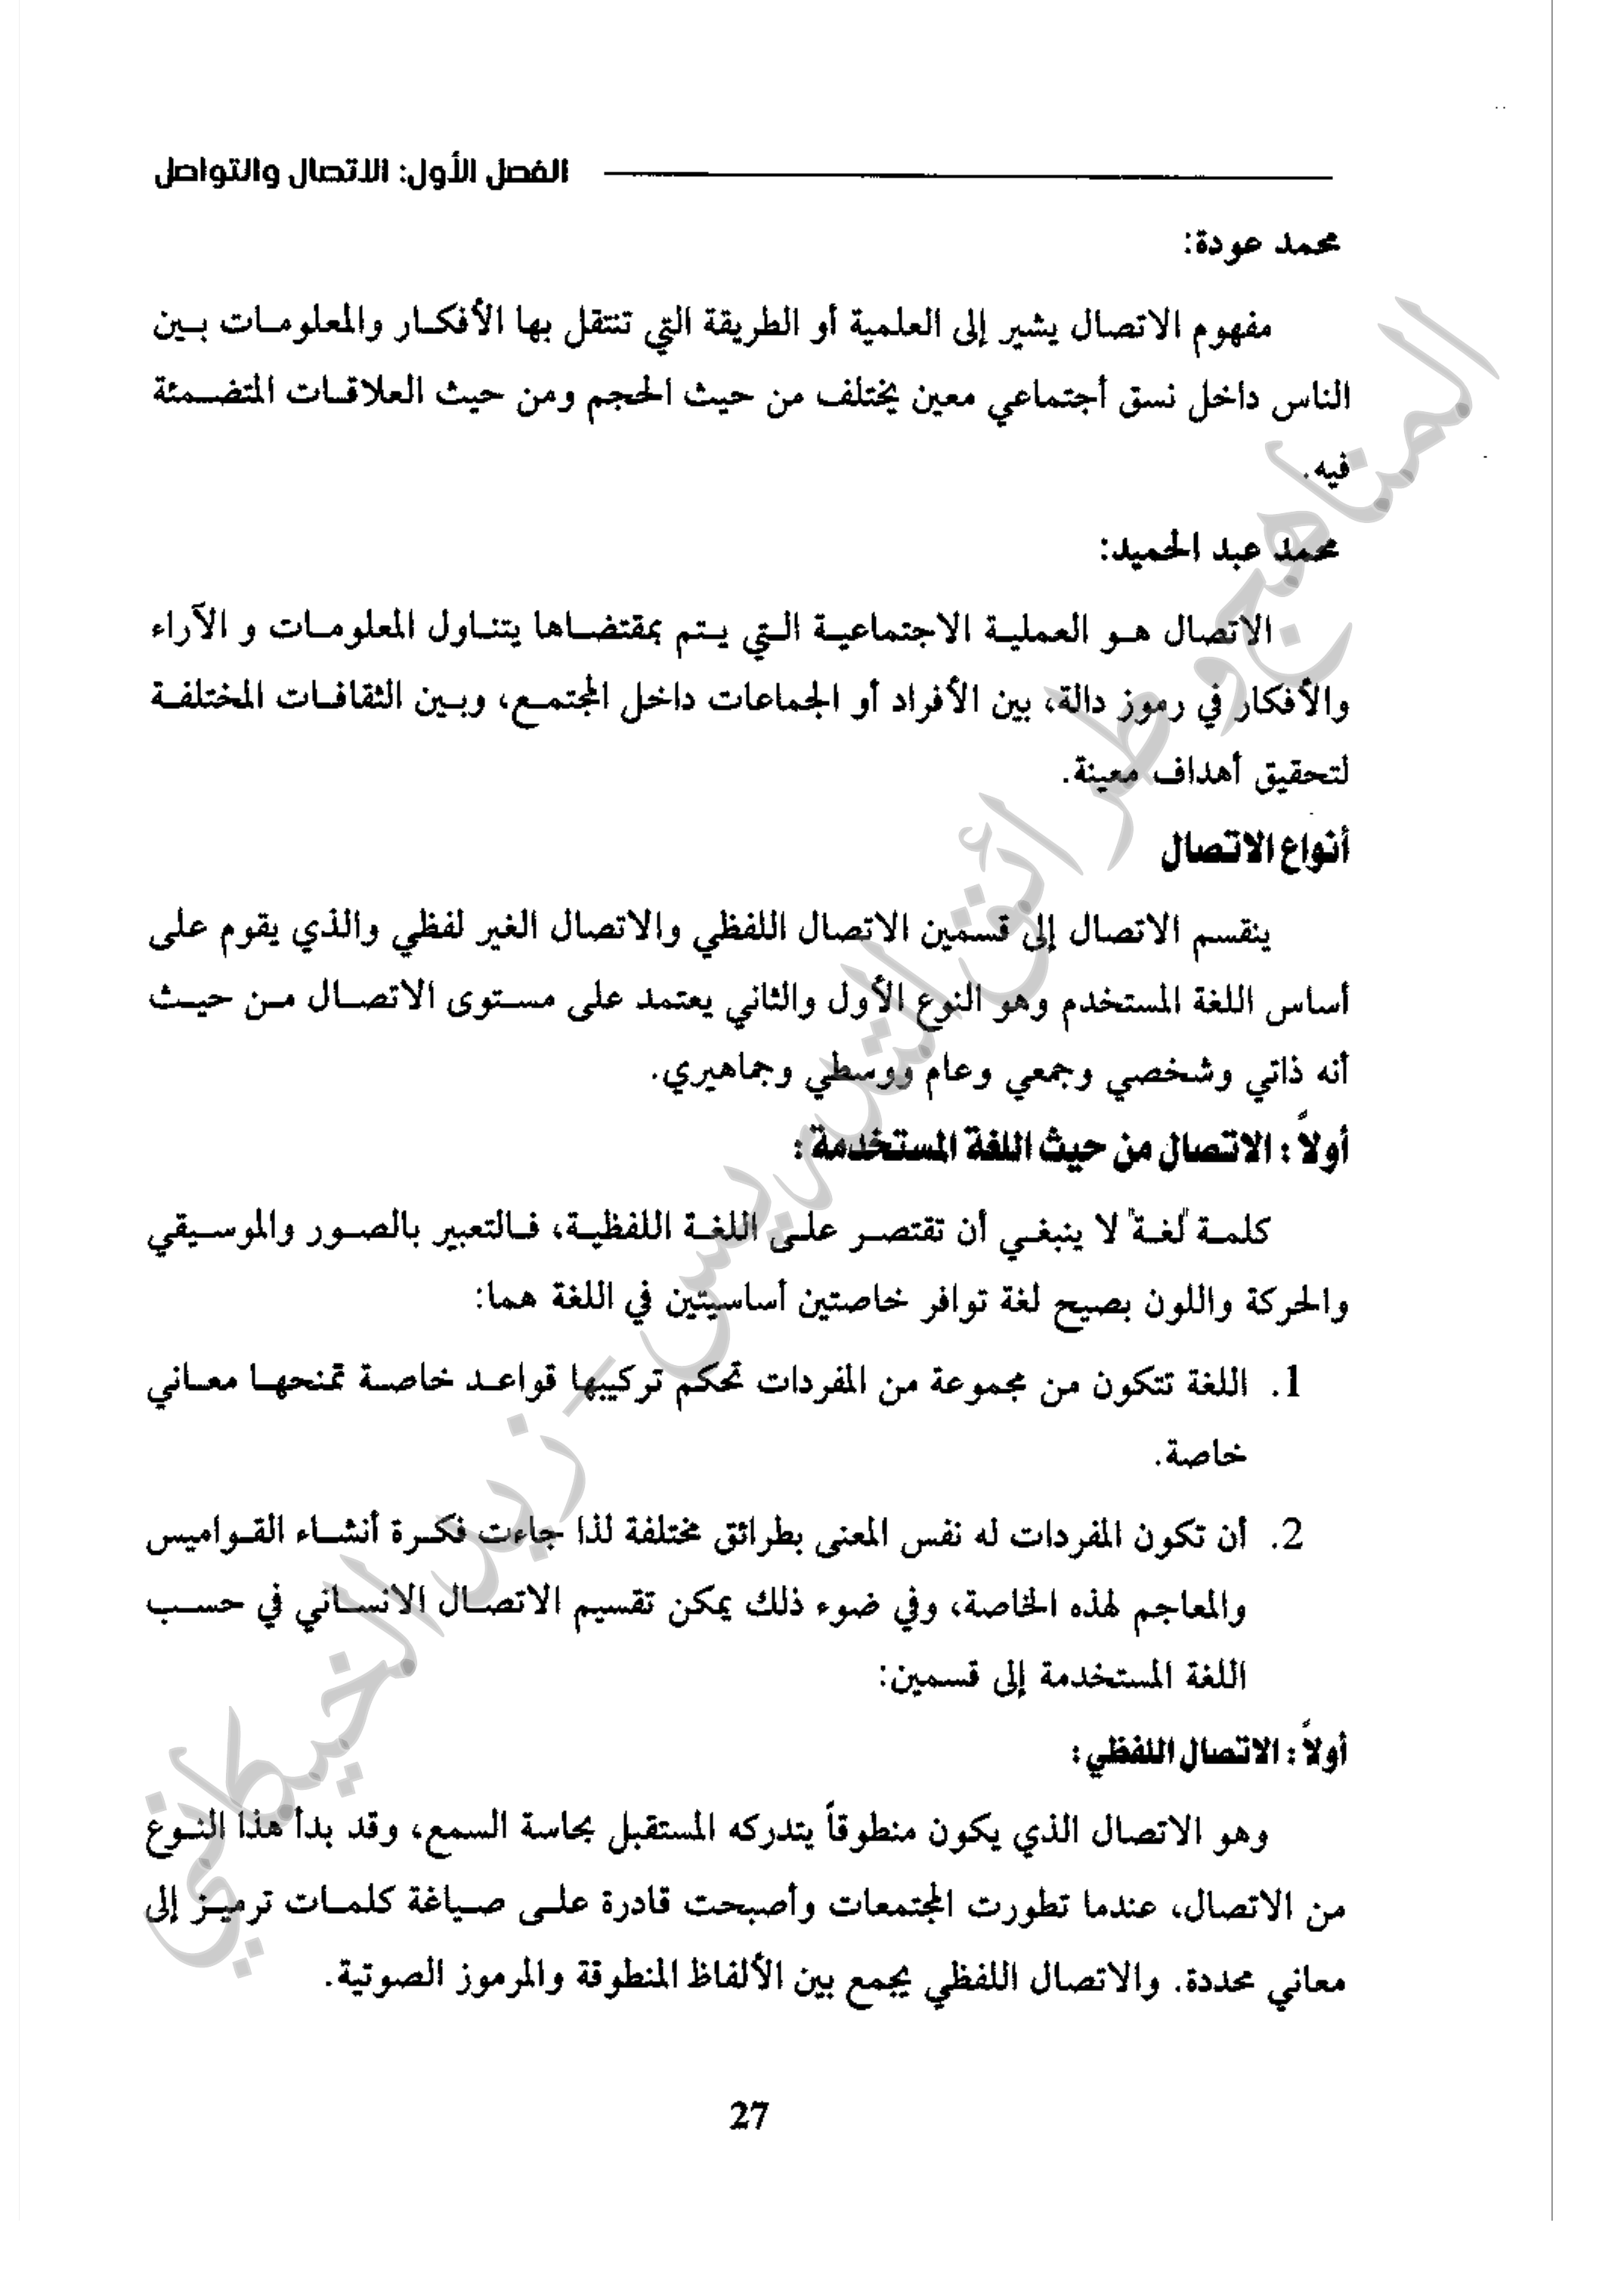 الفصل الأول: الاتصال والتواصل
محمد عودة:
مفهوم الاتصال يشير إلى العلمية أو الطريقة التي تنتقل بها الأفكار والمعلومات بين
الناس داخل نسق أجتماعي معين يختلف من حيث الحجم ومن حيث العلاقات المتضمئة
فيه.
محمد عبد الحميد:
الاتصال هو العملية الاجتماعية التي يتم بمقتضاها يتناول المعلومات و الآراء
والأفكار في رموز دالة، بين الأفراد أو الجماعات داخل المجتمع، وبين الثقافات المختلفة
لتحقيق أهداف معينة.
أنواع الاتصال
ينقسم الاتصال إلى قسمين الاتصال اللفظي والاتصال الغير لفظي والذي يقوم على
أساس اللغة المستخدم وهو النوع الأول والثاني يعتمد على مستوى الاتصال من حيث
أنه ذاتي وشخصي وجمعي وعام ووسطي وجماهيري.
أولاً : الاتصال من حيث اللغة المستخدمة :
كلمة "لغة" لا ينبغي أن تقتصر على اللغة اللفظية، فالتعبير بالصور والموسيقي
والحركة واللون بصيح لغة توافر خاصتين أساسيتين في اللغة هما:
1. اللغة تتكون من مجموعة من المفردات تحكم تركيبها قواعد خاصة تمنحها معاني
خاصة.
2. أن تكون المفردات له نفس المعنى بطرائق مختلفة لذا جاءت فكرة أنشاء القواميس
والمعاجم لهذه الخاصة، وفي ضوء ذلك يمكن تقسيم الاتصال الانساني في حسب
اللغة المستخدمة إلى قسمين:
أولاً : الاتصال اللفظي :
وهو الاتصال الذي يكون منطوقاً يتدركه المستقبل بحاسة السمع، وقد بدأ هذا النوع
من الاتصال، عندما تطورت المجتمعات وأصبحت قادرة على صياغة كلمات ترميز إلى
معاني محددة. والاتصال اللفظي يجمع بين الألفاظ المنطوقة والمرموز الصوتية.
27
المناهج وطرائق التدريس - زيد الخيكاني